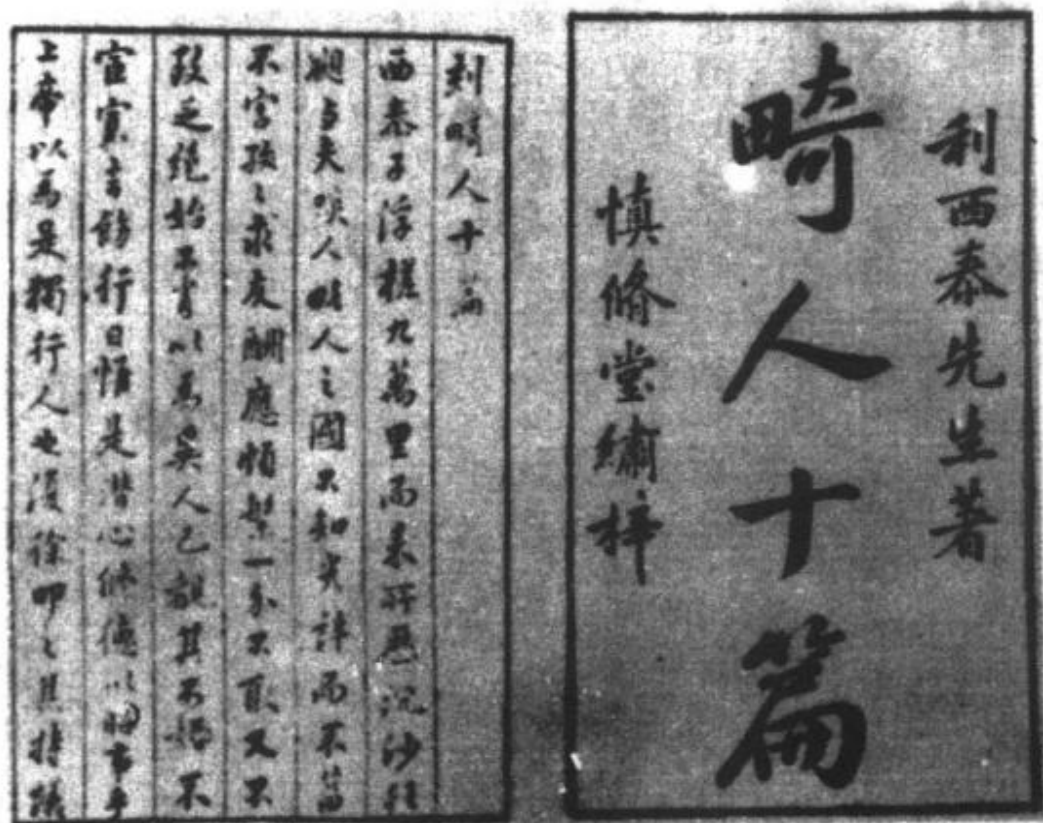 利西泰先生著
畸人十篇
慎脩堂繡梓
刻畸人十篇
西泰子浮槎九萬里而來所歷沉沙狂
颶與夫啖人略人之國不知幾許而不菑
不害孜々求友酬應頗繁一介不取又不
致乏絕始不肖以為異人已覩其不婚不
宦寡言飭行日惟是潛心修德以昭事乎
上帝以為是獨行人也復徐叩之其持議